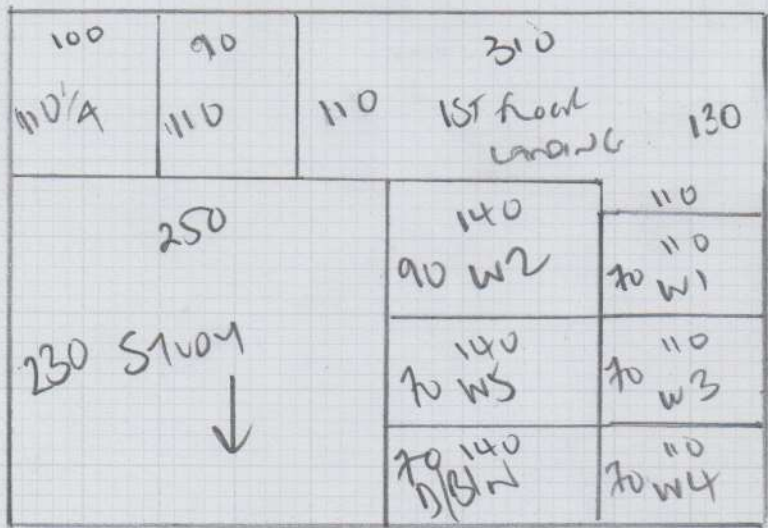 100
110 1/A
90
110
310
110 1ST FLOOR 130
LANDING
110
250
230 STUDY
140
90 W2
110
70 W1
140
70 W5
110
70 W3
140
70
D/BIN
110
70 W4